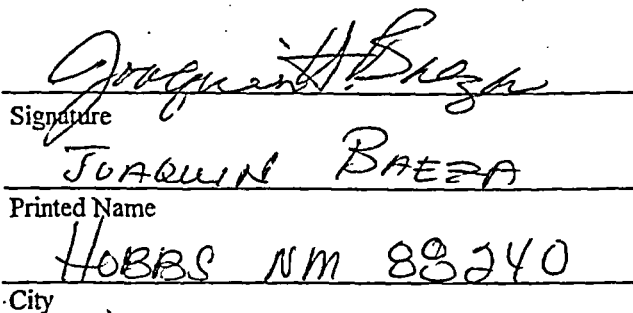 Joaquin H. Baeza
Signature
JOAQUIN BAEZA
Printed Name
HOBBS NM 88240
City